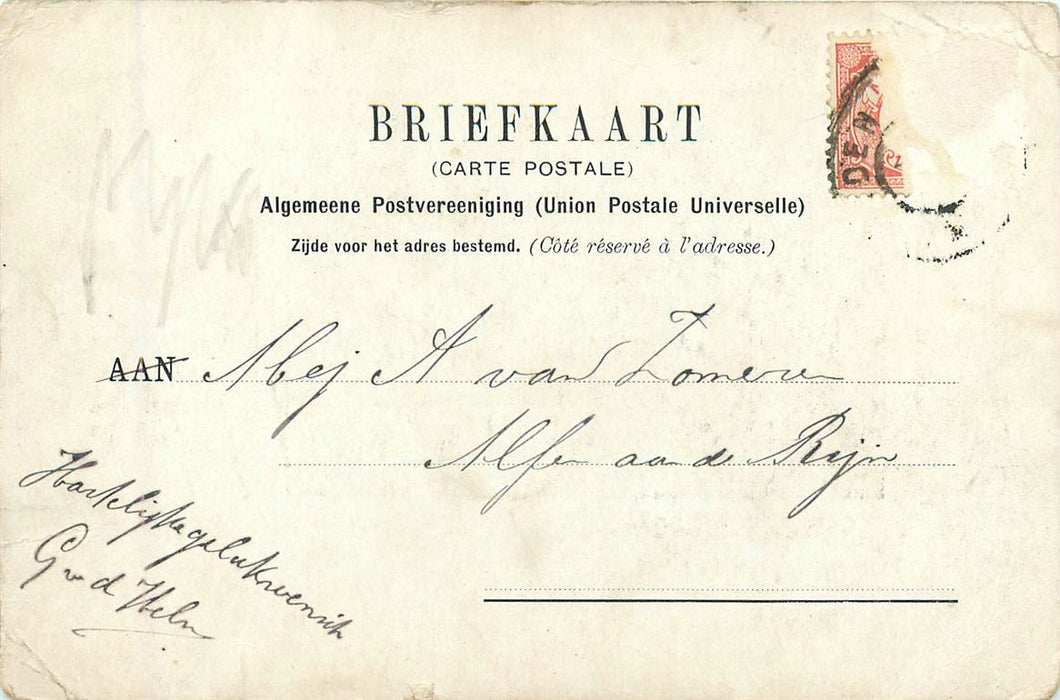 BRIEFKAART
(CARTE POSTALE)
Algemeene Postvereeniging (Union Postale Universelle)
Zijde voor het adres bestemd. (Côté réservé à l'adresse.)
AAN Mej A van Zomeren
Alfen aan de Rijn
Hartelijke gelukwensch
G v d
DEN